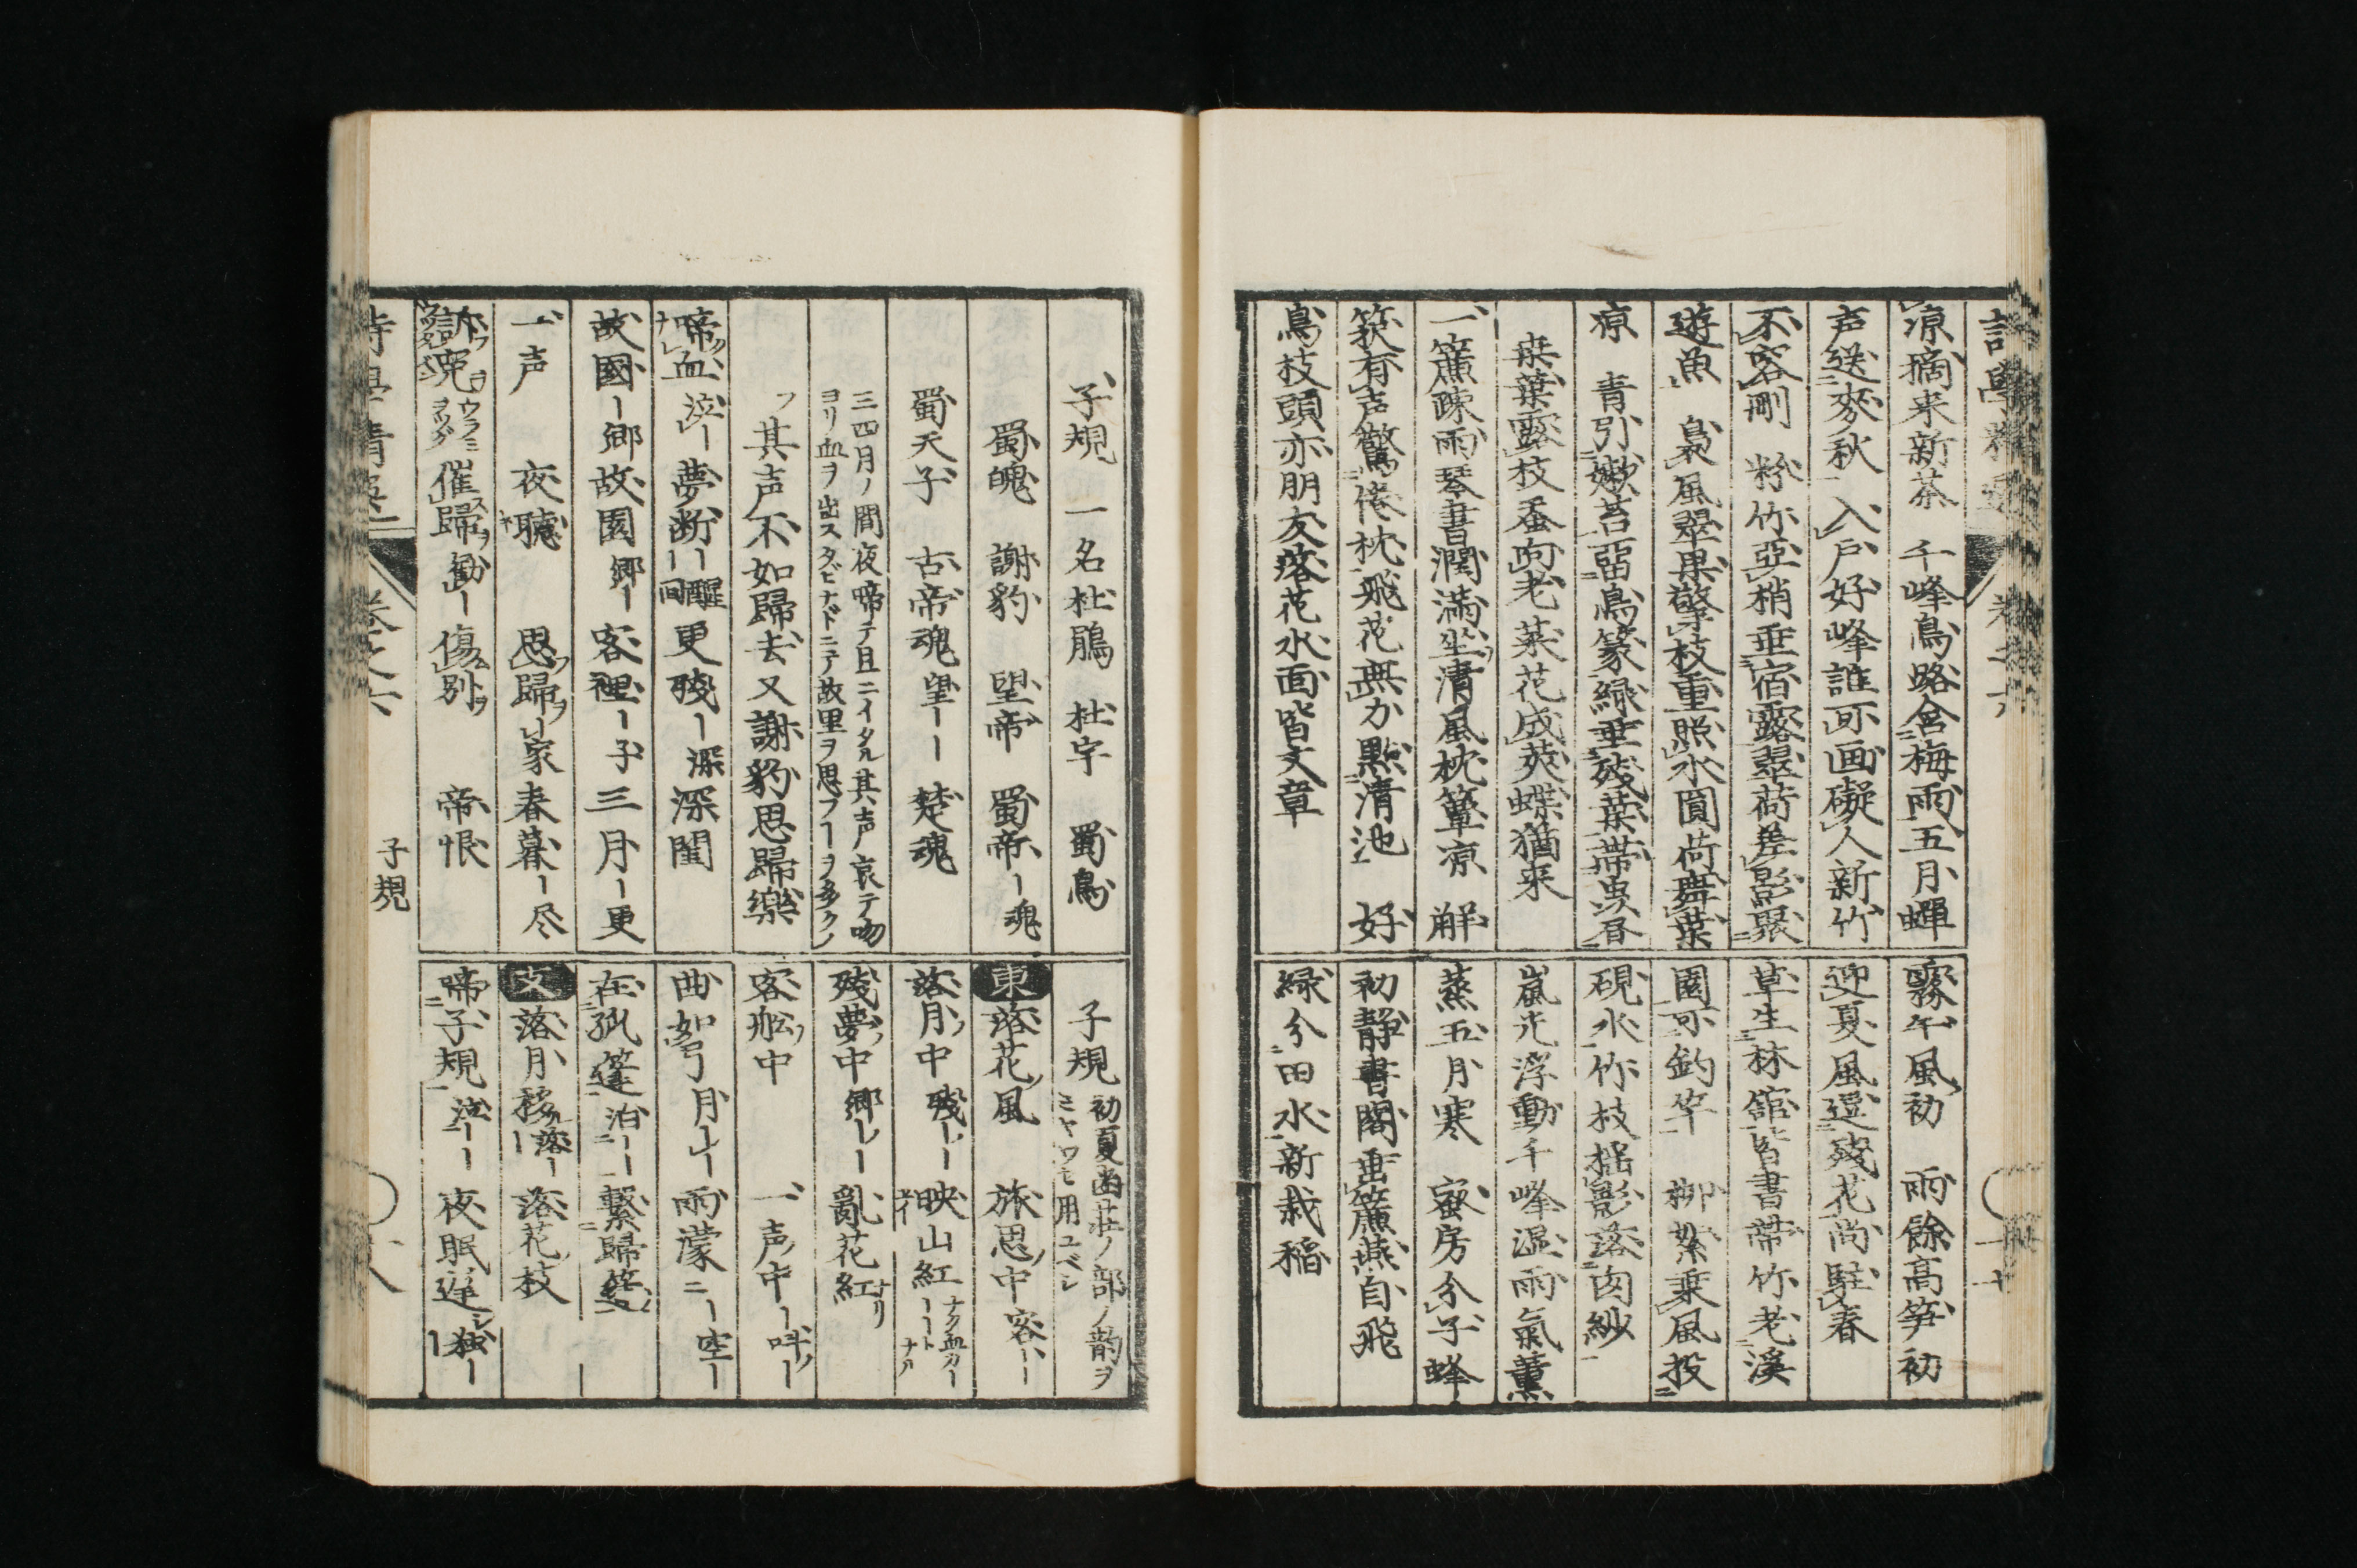 涼摘来新茶　千峰鳥路含梅雨五月蝉
声送麥秋　入戸好峰誰画礙人新竹
不容剛　粉竹亞梢垂宿露翠荷差影聚
遊魚　風翠果擎枝重照水圓荷舞葉
涼　青引嫩苔留鳥篆緑垂残葉帯虫
桒葉露枝蚕向老菜花成莢蝶猶来
一簾疎雨琴書潤満坐清風枕簟凉　觧
籜有声驚倦枕飛花無力點清池　好
鳥枝頭亦朋友落花水面皆文章
霧午風初　雨餘高笋初
迎夏風還残花尚駐春
草生林館皆書帯竹老溪
園可釣竿　柳絮乗風投
硯水竹枝揺影落囱紗
嵐光浮動千峰濕雨氣薫
蒸五月寒　蜜房分子蜂
初静書閣垂簾燕自飛
緑分田水新栽稲
子規　一名杜鵑　杜宇　蜀鳥
蜀魄　謝豹　望帝　蜀帝ー魂
蜀天子　古帝魂望ーー　楚魂
三四月ノ間夜啼テ且ニイタル其声哀テ吻
ヨリ血ヲ出スタビナドニテ故里ヲ思フーヲ多クノ
フ其声不如歸去又謝豹思歸樂
啼血泣ー　夢断ー醒ー間　更残ー深　深閨
故國ー郷　故園郷ー　客裡ー子　三月ー更
一声　夜聴　思歸ー家　春暮ー尽
訴寃　催歸勧ー　傷別　帝恨
子規
子規　初夏幽荘ノ部ノ韵ヲ
ミヤワセ用ユベシ
東　落花風　旅思中客ー
落月中残ー　映山紅
残夢中郷ー　亂花紅
客舩中　一声中ー呌ー
曲如弓月ー　雨濛ニー空ー
在孤篷泊ー　繋歸篷
支　落月移落ー　落花枝
啼子規泣ーー　夜眠遅独ー